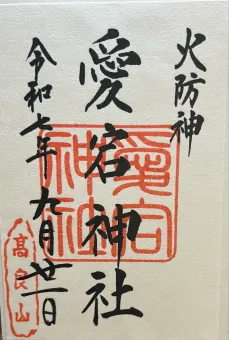 火防神
愛宕神社
令和七年九月廿一日
愛宕神社
高良山